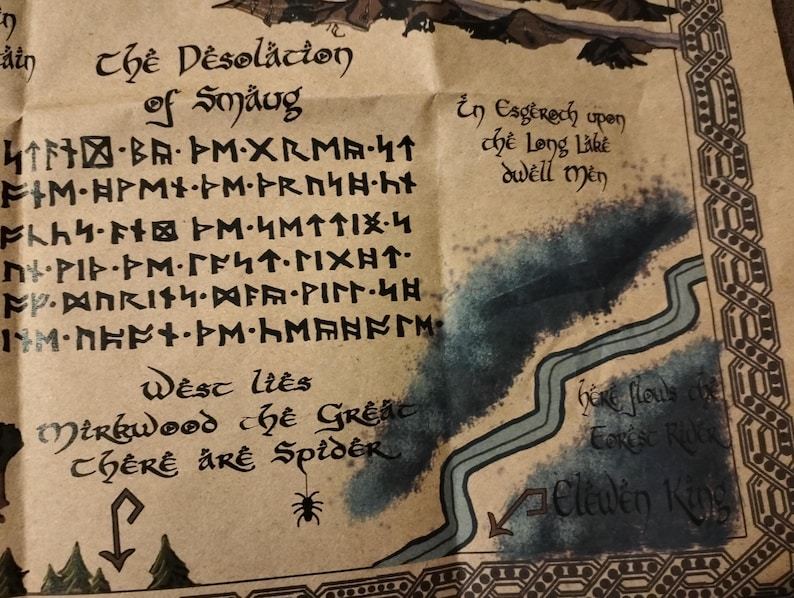 The Desolation
of Smaug
ᛋᛏᚪᚾᛞ᛫ᛒᚣ᛫ᚦᛖ᛫ᚷᚱᛖᚣ᛫ᛋᛏ
ᚩᚾᛖ᛫ᚻᚹᛖᚾ᛫ᚦᛖ᛫ᚦᚱᚢᛋᚻ᛫ᚳᚾ
ᚩᚳᚳᛋ᛫ᚪᚾᛞ ᚦᛖ᛫ᛋᛖᛏᛏᛁᛝ᛫ᛋ
ᚢᚾ᛫ᚹᛁᚦ᛫ᚦᛖ᛫ᛚᚪᛋᛏ᛫ᛚᛁᚷᚻᛏ᛫
ᚩᚠ᛫ᛞᚢᚱᛁᚾᛋ᛫ᛞᚪᚣ᛫ᚹᛁᛚᛚ᛫ᛋᚻ
ᛁᚾᛖ᛫ᚢᛈᚩᚾ᛫ᚦᛖ᛫ᚳᛖᚣᚻᚩᛚᛖ᛫
In Esgeroth upon
the Long Lake
dwell Men
West lies
Mirkwood the Great
There are Spider
here flows the
Forest River
Elewen King